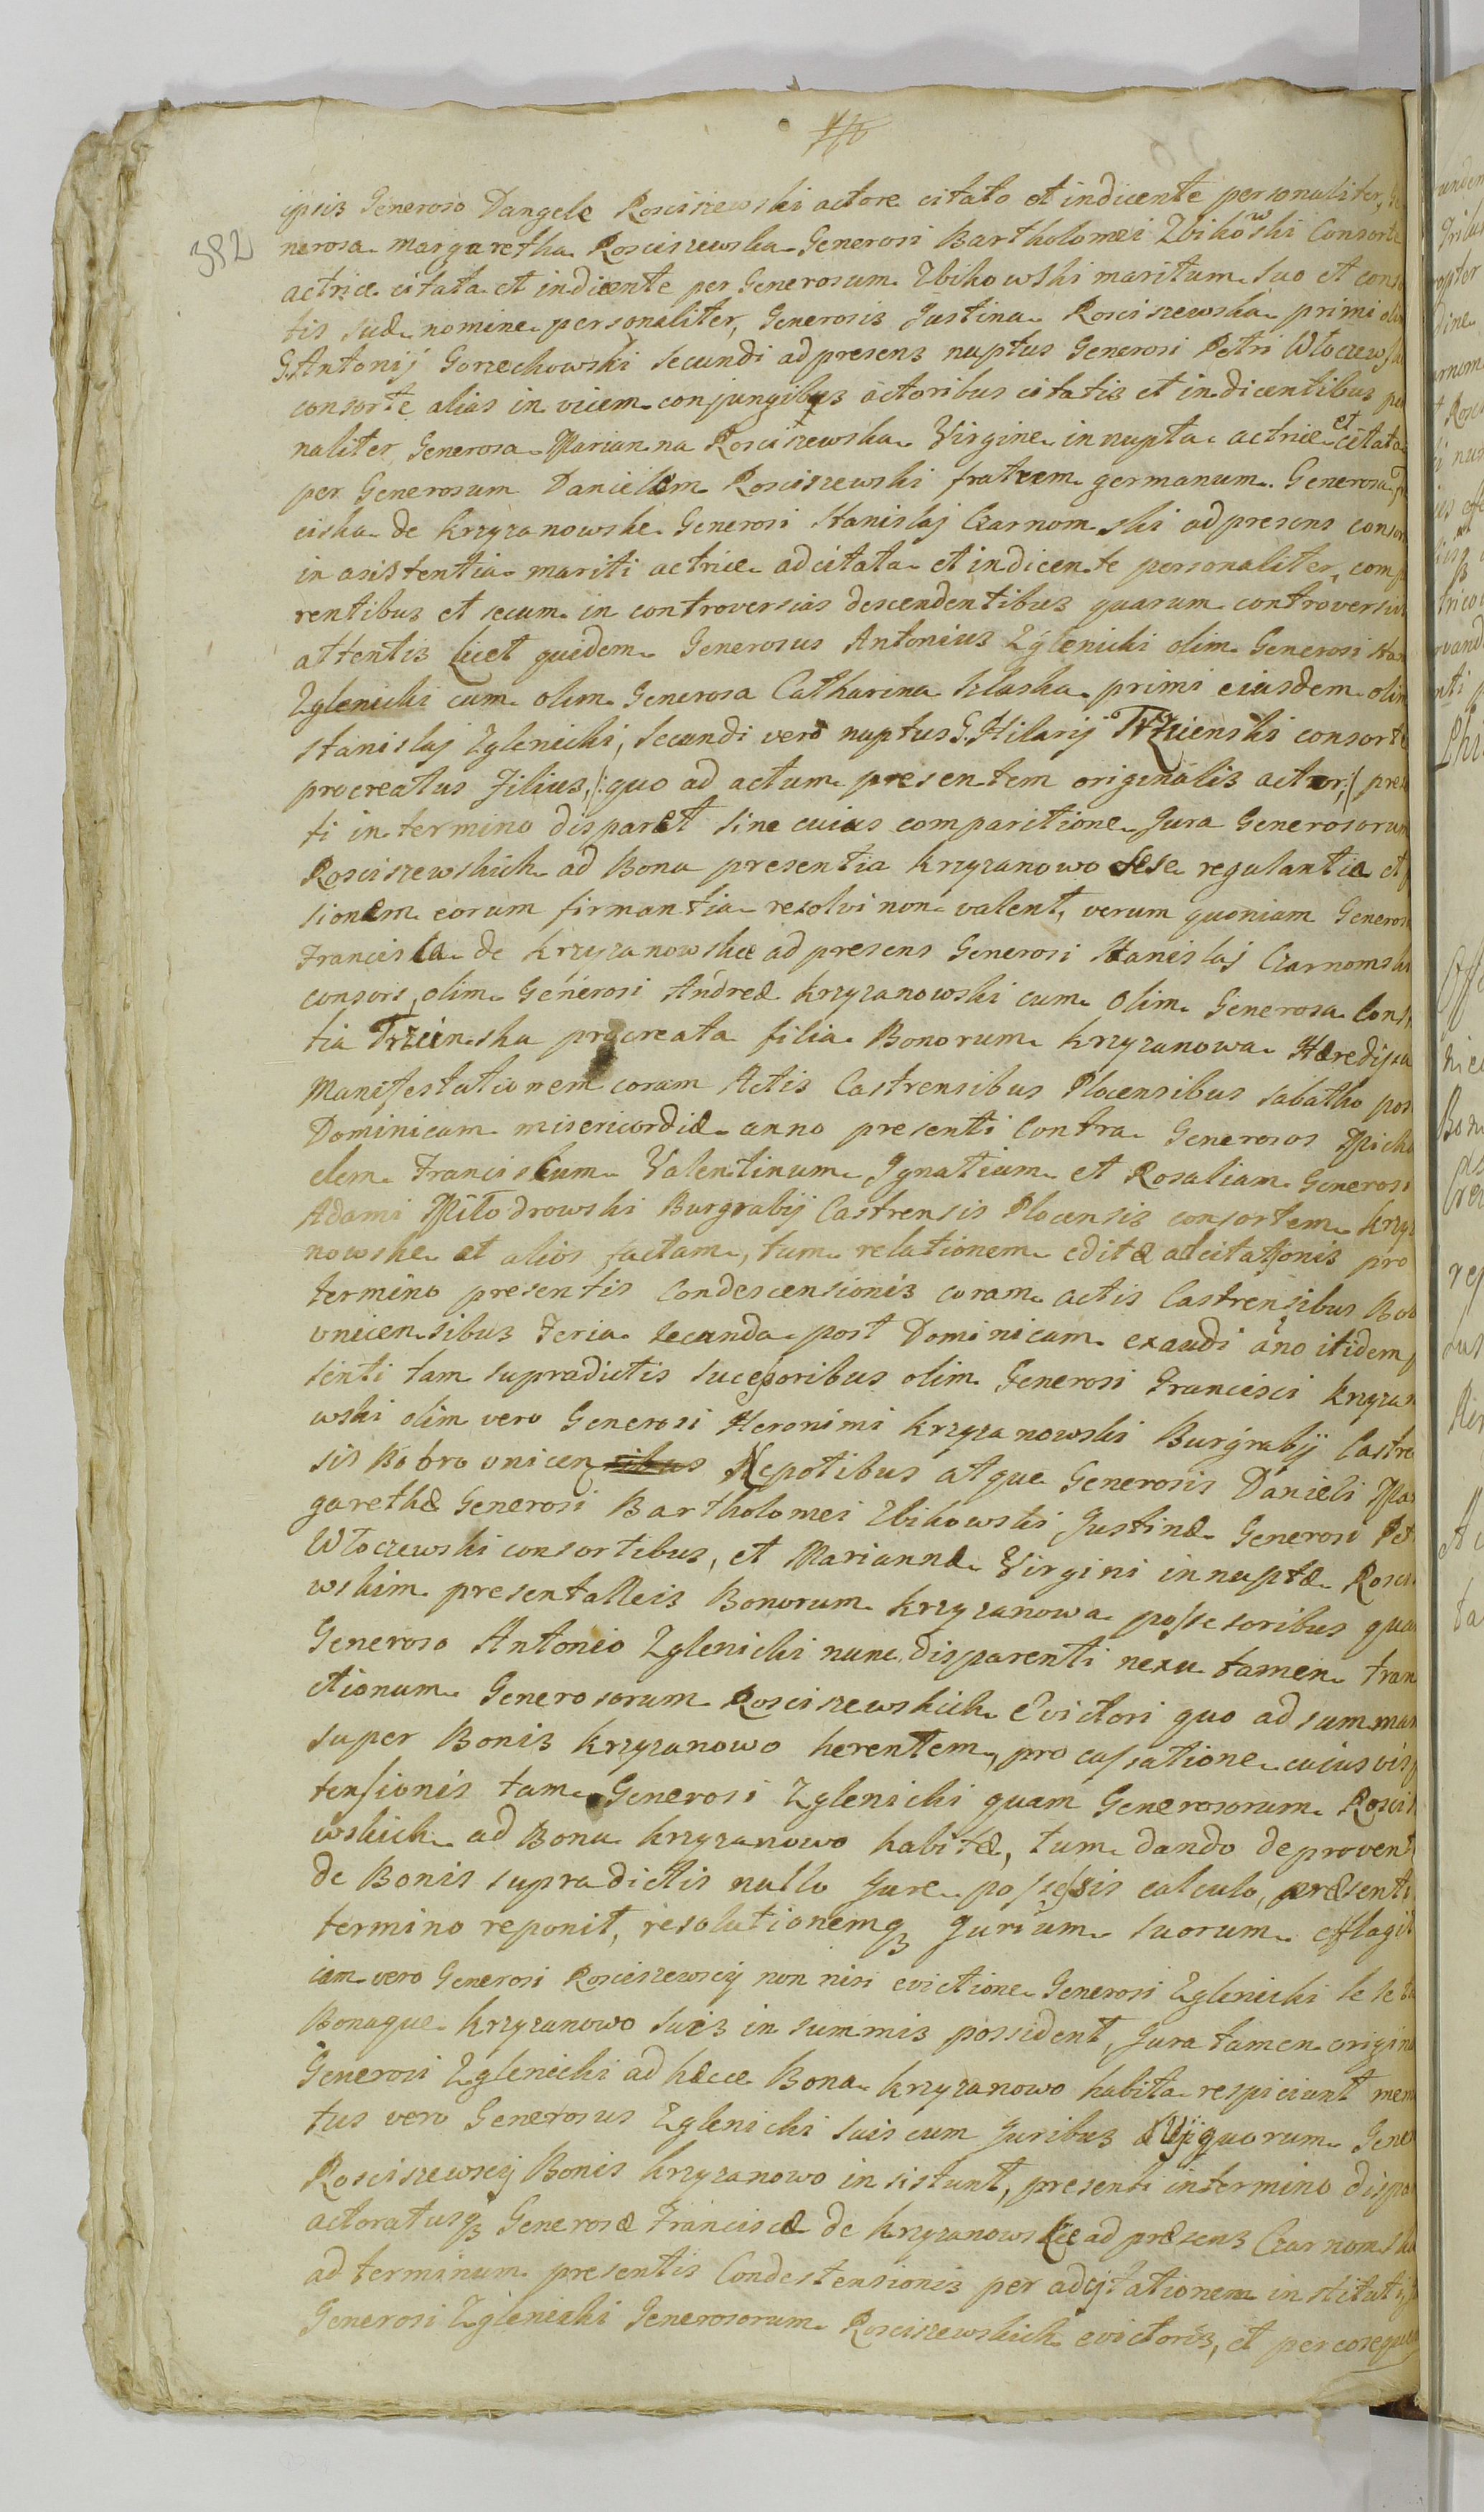 382
ipsis Generoso Dangele Rosciszewski actore citato et indicente personaliter, Ge
nerosa margaretha Rosciszewska Generosi Bartholomei Zbikowski Consorte
actrice citata et indicente per Generosum Zbikowski maritum suo et conso
tis suæ nomine personaliter, Generosis Justina Rosciszewska primi olim
G. Antonij Gorzechowski secundi ad presens nuptus Generosi Petri Włoczewski
consorte alias in vicem conjungibus actoribus citatis et indicentibus per
naliter Generosa Marianna Rosciszewska Virgine innupta actrice et citata
per Generosum Danielem Rosciszewski fratrem germanum. Generosa
ciska de Krzyzanowskie Generosi Stanislaj Czarnomski ad presens consor
in asistentia mariti actrice adcitata et indicente personaliter, comp
rentibus et secum in controversias descendentibus quarum controversiis
attentis licet quidem Generosus Antonius Zglenicki olim Generosi Stan
Zglenicki cum olim Generosa Catharina Szlaska primi eiusdem olim
Stanislaj Zglenicki, secundi vero nuptus G. Hilarij Trzcienski consorte
procreatus Filius, /: quo ad actum presentem originalis actor, :/ prese
ti in termino disparet sine cuius comparitione Jura Generosorum
Rosciszewskich ad Bona presentia Krzyzanowo sese regulantia et
sionem eorum firmantia resolvi non valent, verum quoniam Generosa
Francisca de Krzyzanowskie ad presens Generosi Stanislaj Czarnomski
consors, olim Generosi Andreæ Krzyzanowski cum olim Generosa Const
tia Trzcinska procreata filia Bonorum Krzyzanowa Hæredissa
Manifestationem coram Actis Castrensibus Plocensibus sabatho post
Dominicam misericordiæ anno presenti Contra Generosos Micha
elem Franciscum Valentinum Ignatium et Rosaliam Generosi
Adami Miłodrowski Burgrabij Castrensis Plocensis consortem Krzyz
nowskie et alios factam, tum relationem editæ adcitationis pro
termino presentis Condescensionis coram actis Castrensibus Bob
vnicensibus Feria secunda post Dominicam exaudi año itidem p
senti tam supradictis succesoribus olim Generosi Francisci Krzyzan
wski olim vero Generosi Heronimi Krzyzanowski Burgrabij Castre
sis Bobrovnicen Nepotibus atque Generosis Danieli Mar
garethæ Generosi Bartholomei Zbikowski Justinæ Generosi Pet
Włoczewski consortibus, et Mariannæ Virgini innuptæ Rosci
wskim presentalleis Bonorum Krzyzanowa possesoribus quam
Generoso Antonio Zglenicki nunc disparenti nexu tamen tran
ctionum Generosorum Rosciszewskich Evictori quo ad summam
super Bonis Krzyzanowo herentem, pro cassatione cuiusvis p
tensionis tam Generosi Zglenicki quam Generosorum Roscis
wskich ad Bona Krzyzanowo habitæ, tum dando de provent
de Bonis supradictis nullo Jure possessis calculo, præsenti
termino reponit, resolutionemq3 Jurium suorum efflagit
iam vero Generosi Rosciszewscy non nisi evictione Generosi Zglenicki se se
Bonaque Krzyzanowo suis in summis possident, Jura tamen origina
Generosi Zglenicki ad hæcce Bona Krzyzanowo habita respiciunt mem
tus vero Generosus Zglenicki suis cum Juribus quorum Gener
Rosciszewscy Bonis Krzyzanowo insistunt, presenti in termino dispar
actoratusq3 Generosæ Franciscæ de Krzyzanowskie ad præsens Czarnomska
ad terminum presentis Condestensionis per adcitationem instituti,
Generosi Zglenicki Generosorum Rosciszewskich evictoris, et per eoseque